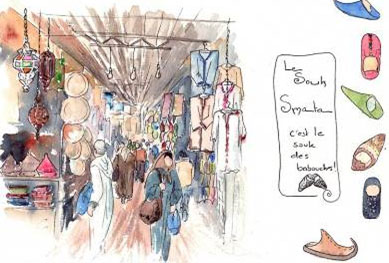 Le
Souk
Smarta
c'est le
souk
des
babouches!